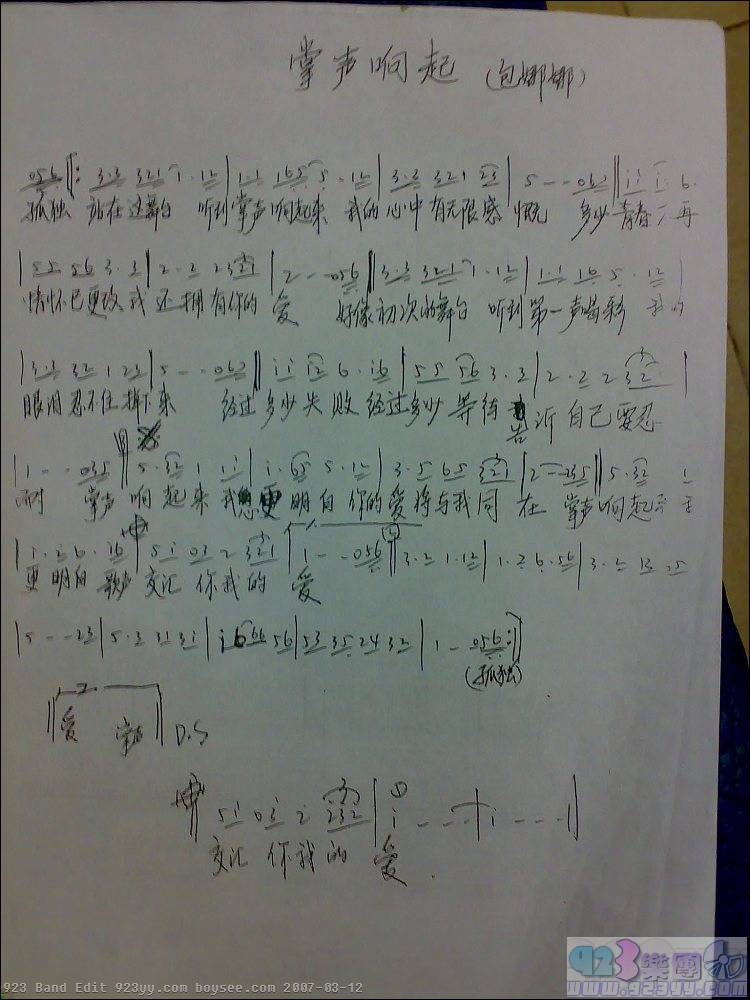 掌声响起 (包娜娜)
056 ‖: 3·3 321 1·12 | 1·1 165 5·12 | 3·3 321 23 | 5 - - 062 ‖ i i i·6·
孤独 站在这舞台 听到掌声响起来 我的心中有无限感慨 多少青春不再
| 55 56 3·3 | 2·2 2321 | 2 - - 056 ‖ 3·3 321 1·12 | 1·1 16 5·12 |
情怀已更改 我还拥有你的爱 好像初次的舞台 听到第一声喝彩 我的
| 3·3 32 1 23 | 5 - - 062 ‖ i i i2 6·i6 | 55 56 3·3 | 2·2 2 32 |
眼泪忍不住掉下来 经过多少失败 经过多少等待 告诉自己要忍
| 1 - - 035 ‖ 5·32 1 1i | i·65 5·12 | 3·5 65 321 | 2 - 235 ‖ 5·32 1
耐 掌声响起来 我更明白 你的爱将与我同在 掌声响起来
| i·2 6·i6 | 5i 03 2 321 | 1 - - 056 :‖ 3·2 1·12 | 1·2 6·56 | 3·2 13 25
更明白 歌声交汇你我的爱
| 5 - - 23 | 5·3 31 31 | i 6 66 56 | 53 35 24 32 | 1 - 056 :‖
(孤独)
2
爱 掌声 D.S
5i 03 2 232 | i - - - | i - - - ‖
交汇 你我的 爱
923 Band Edit 923yy.com boysee.com 2007-03-12
923樂團
www.923yy.com